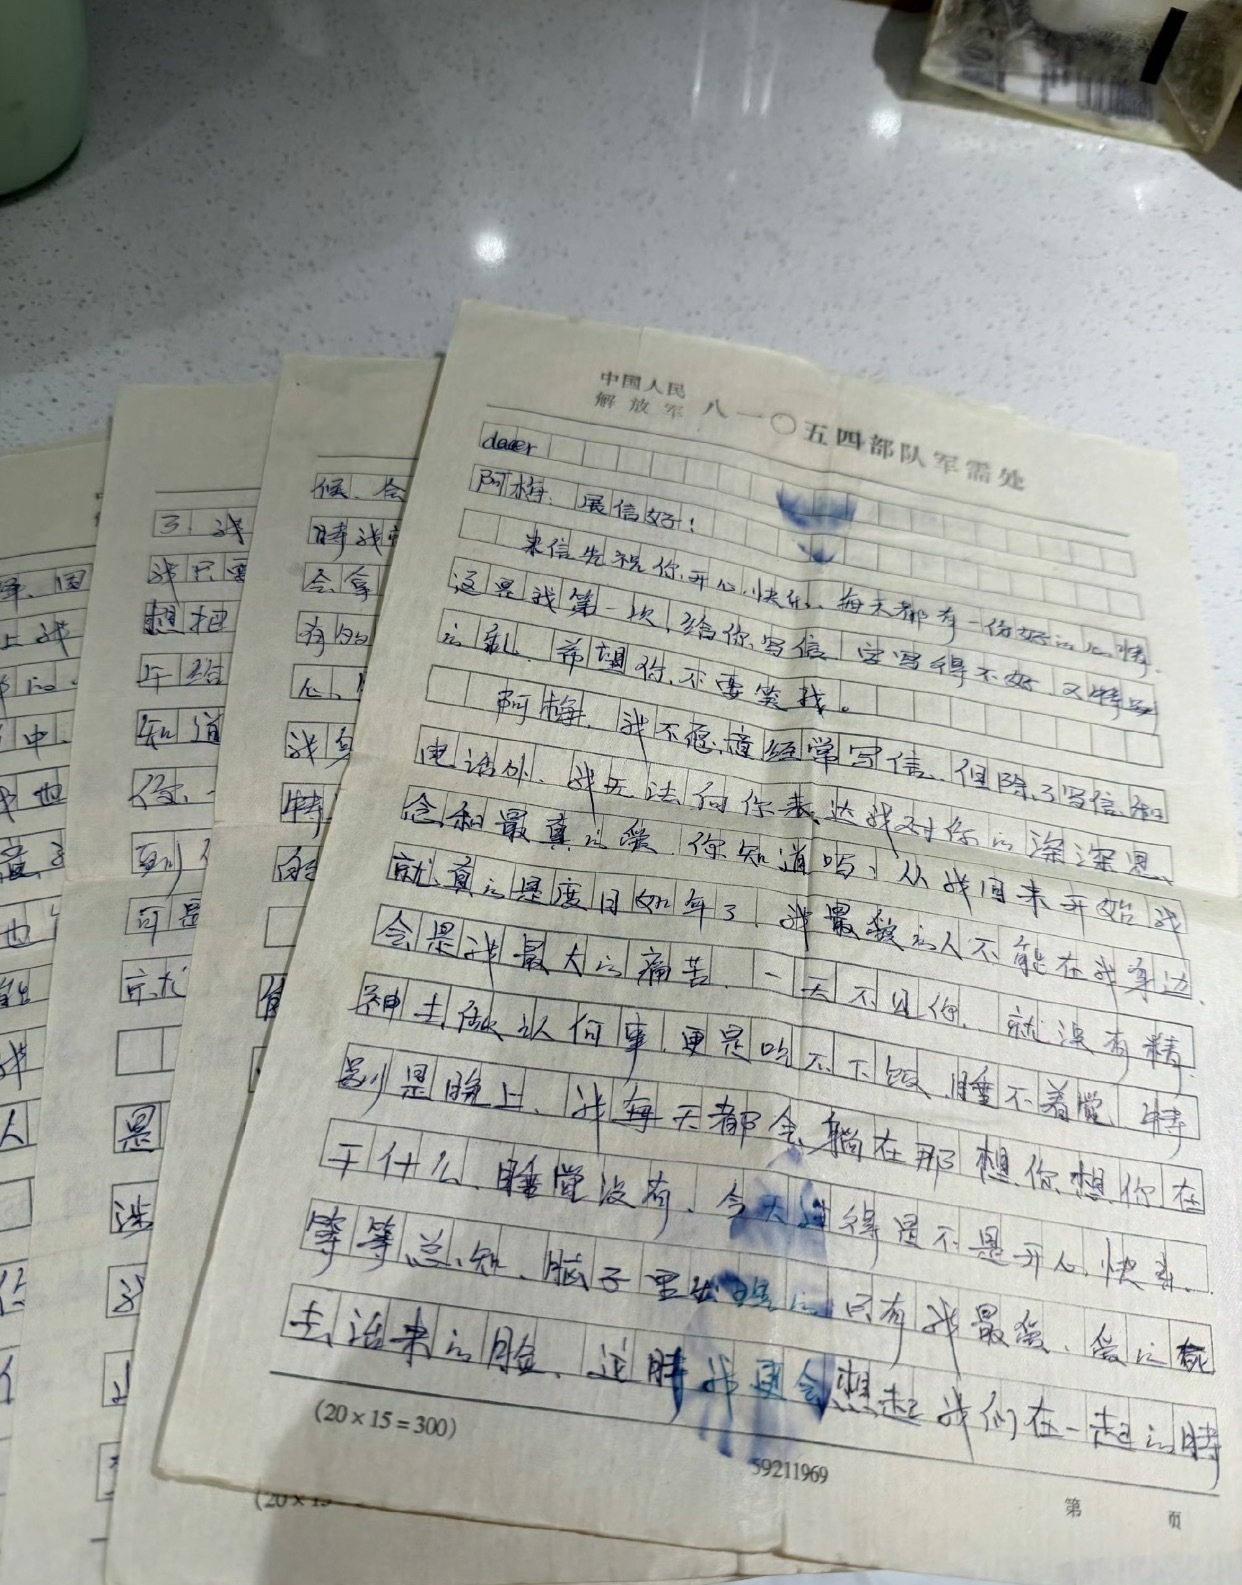 中国人民
解放军 八一〇五四部队军需处
daer
阿梅：展信好！
来信先祝你开心、快乐、每天都有一份好的心情.
这是我第一次给你写信、字写得不好 又特别
的乱、希望你不要笑我。
阿梅、我不愿意经常写信、但除了写信和
电话外、我无法向你表达我对你的深深思
念和最真的爱、你知道吗、从我回来开始我
就真的是度日如年了、我最爱的人不能在我身边.
会是我最大的痛苦、一天不见你、就没有精
神去做认何事、更是吃不下饭、睡不着觉、特
别是晚上、我每天都会躺在那想你、想你在
干什么、睡觉没有、今天过得是不是开心、快乐、
等等总知、脑子里出现的只有我最爱、爱的
去活来的脸、这时我更会想起我们在一起的時
(20×15=300)
59211969
第 页
候、会
時我
会拿
有的
心、
我
特
3、我
我只要
想把
年给
知道
你、
到
可是
就
是
上我
中、
也
人
(20×15